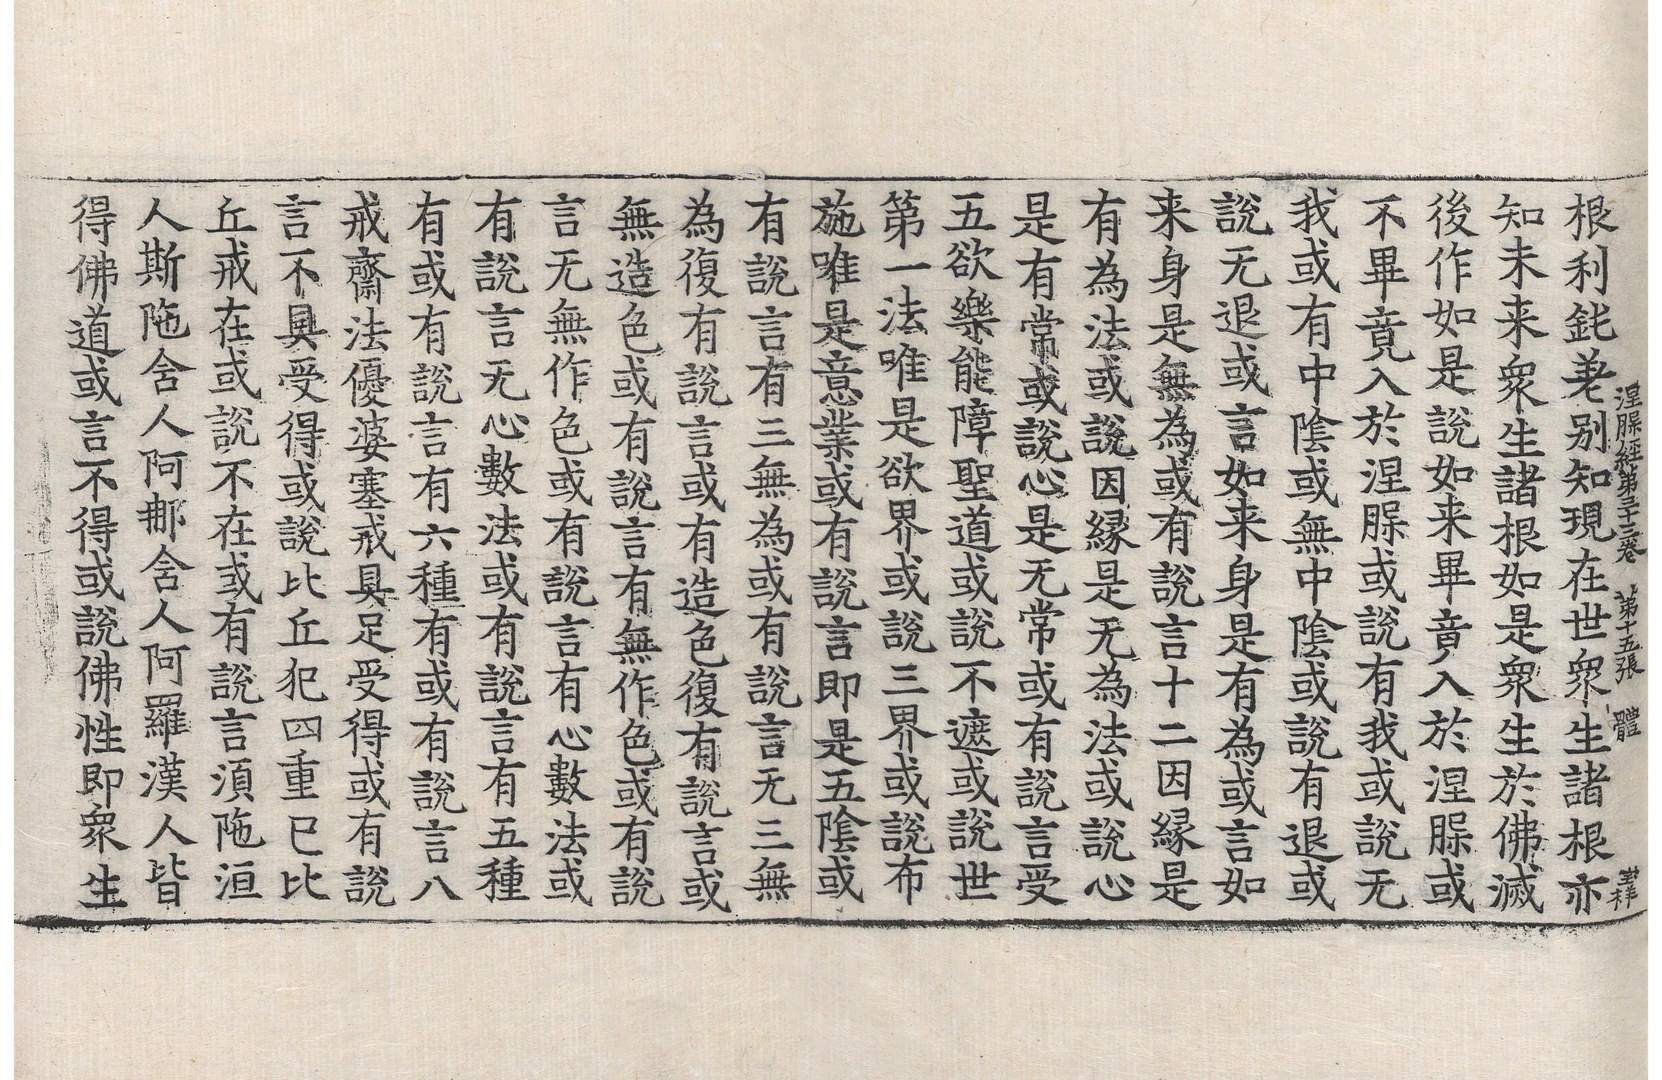 涅槃經第三十三卷 第十五張 體
根利鈍差別知現在世衆生諸根亦
知未来衆生諸根如是衆生於佛滅
後作如是說如来畢竟入於涅槃或
不畢竟入於涅槃或說有我或說无
我或有中陰或無中陰或說有退或
說无退或言如来身是有為或言如
来身是無為或有說言十二因緣是
有為法或說因緣是无為法或說心
是有常或說心是无常或有說言受
五欲樂能障聖道或說不遮或說世
第一法唯是欲界或說三界或說布
施唯是意業或有說言即是五陰或
有說言有三無為或有說言无三無
為復有說言或有造色復有說言或
無造色或有說言有無作色或有說
言无無作色或有說言有心數法或
有說言无心數法或有說言有五種
有或有說言有六種有或有說言八
戒齋法優婆塞戒具足受得或有說
言不具受得或說比丘犯四重已比
丘戒在或說不在或有說言湏陁洹
人斯陁含人阿那含人阿羅漢人皆
得佛道或言不得或說佛性即衆生